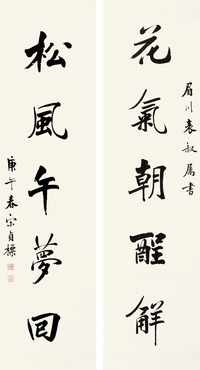 眉川表叔属書
花氣朝酲解
松風午夢回
庚午春